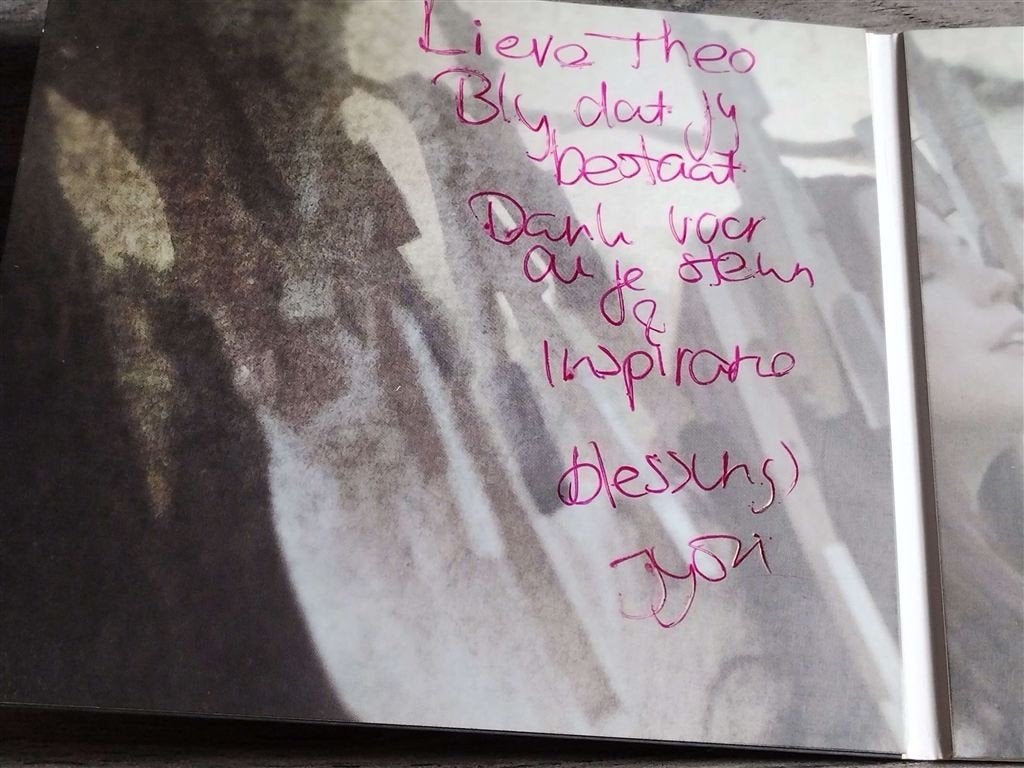 Lieve Theo
Bly dat jy
bestaat
Dank voor
al je steun
&
Inspiratie
blessings